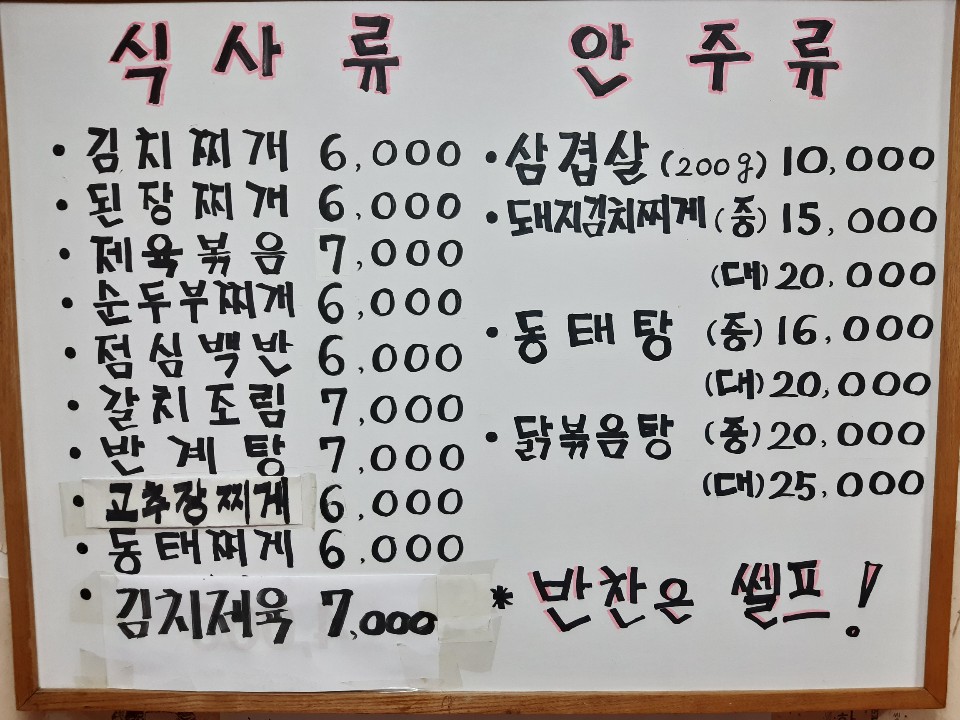 식사류
· 김치찌개 6,000
· 된장찌개 6,000
· 제육볶음 7,000
· 순두부찌개 6,000
· 점심백반 6,000
· 갈치조림 7,000
· 반계탕 7,000
· 고추장찌게 6,000
· 동태찌게 6,000
· 김치제육 7,000
안주류
· 삼겹살 (200g) 10,000
· 돼지김치찌게 (중) 15,000
(대) 20,000
· 동태탕 (중) 16,000
(대) 20,000
· 닭볶음탕 (중) 20,000
(대) 25,000
* 반찬은 쎌프!